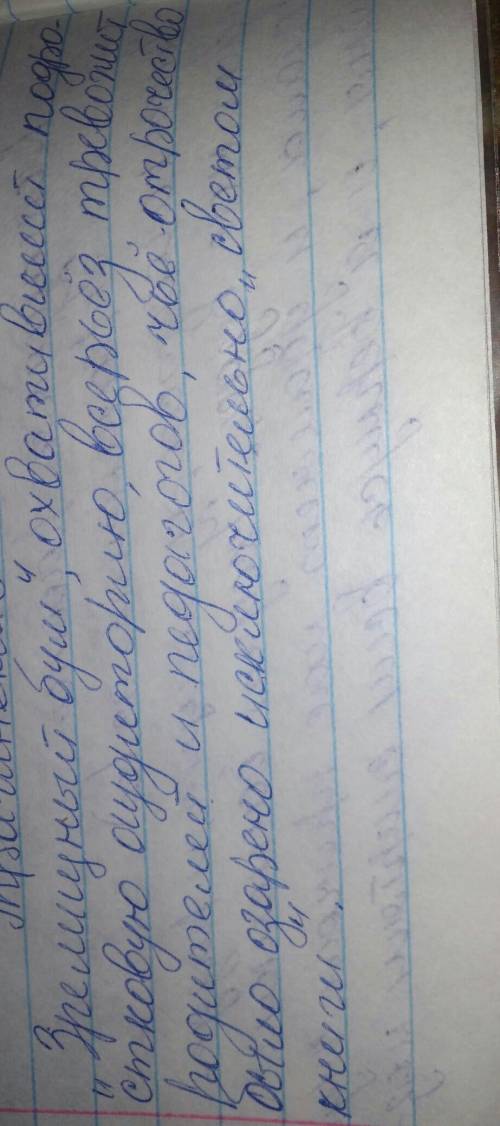 „Зрелищный бум“, охвативший подро-
стковую аудиторию, всерьёз тревожит
родителей и педагогов, чьё отрочество
было озарено исключительно „светом
книги“.